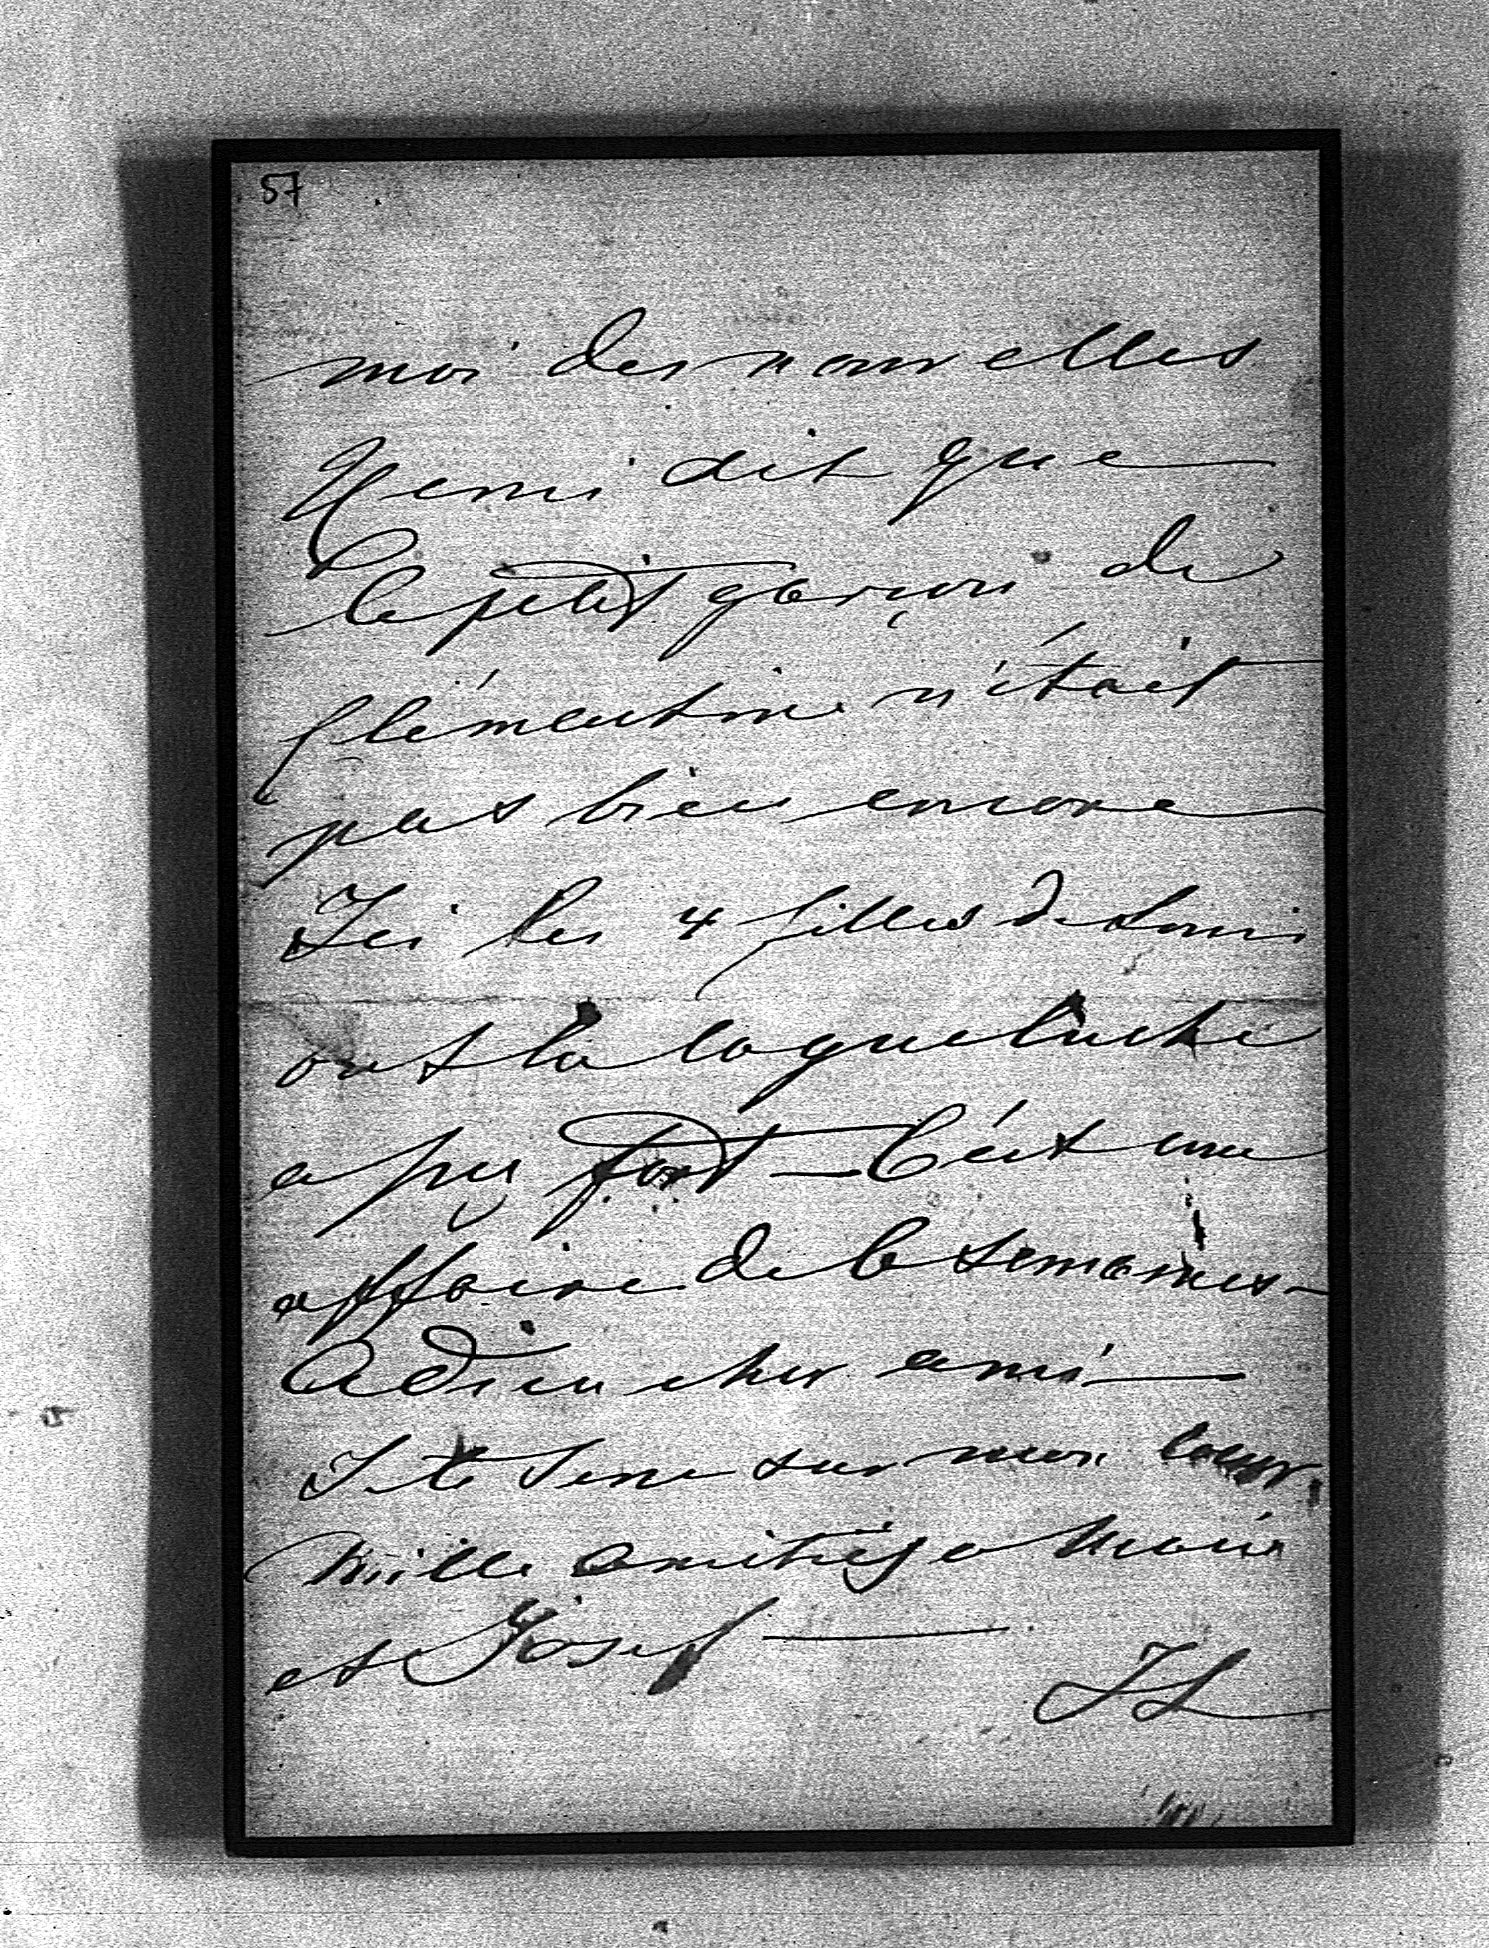 57
moi des nouvelles
Henri dit que
le petit garçon de
Clémentine n'était
pas bien encore
Ici les 4 filles de Louis
ont la coqueluche
a peu fort — C'est une
affaire de 6 semaines —
Adieu cher ami —
Je te serre sur mon coeur,
Mille amitiés a Marie
et Josef —
JL